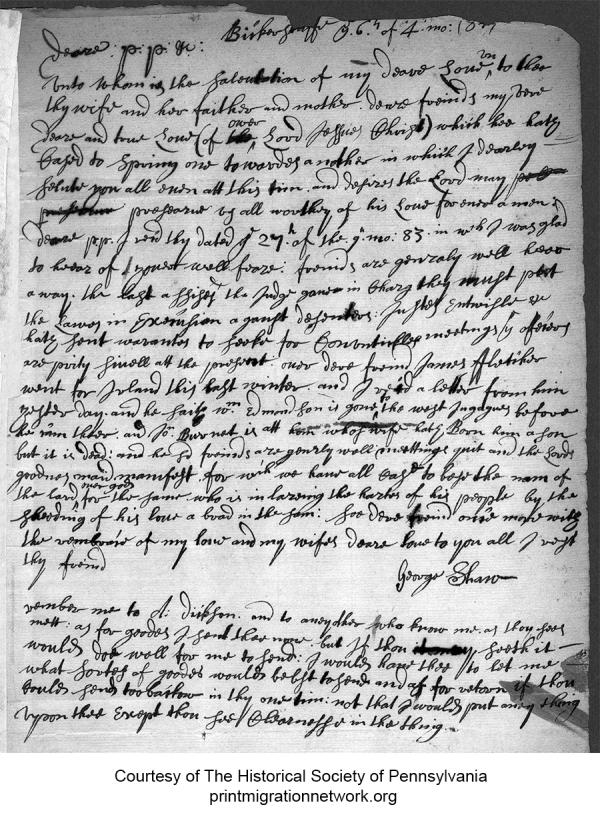 Bickershaffe 9. 6.th of 4. mo: (83)
Deare: p: p: &c:
Unto whom is the salutation of my deare Love, to thee
thy wife and her faither and mother. deare freinds my dere
deare and true Love (of our Lord Jessues Christ) which hee hath
Cased to Spring one towardes another in which I dearley
Salute you all even att this tim. and desires the Lord may
preserve us all worthey of his Love for ever amen
Deare pp. I recd thy dated ye 27th of the 9. mo: 83. in wch I was glad
to heear of youer well feare: freinds are genraly well heer
away. the last assises the Judge gave in Charg they must put
the Lawes in Execusion against desenters: Justes Entwisle &c
hath sent warantes to seeke for Conventicles meetings ye ofesers
are prity sivell att the present. ouer dere frend James fletcher
went for Irland this last winter. and I recd a letter from him
yester day. and he saith wm. Edmondson is gone to the west Indgues before
he cam theer. and Jo. Burnet is att whos wife hath Born him a son
but it is dead: and he sd freinds are genrly well meettings quit and the Lords
goodnes manifest. for wch we have all Case to bese the nam of
the lard over god for the same. who is in lareing the hartes of his people by the
sheeding of his love a broad in the sam: soe dere frend onse more with
the rembrance of my love and my wifes deare love to you all I rest
thy frend
George Shaw
rember me to A: Dickson. and to aney other who know me. as thou sees
mett: as for goodes I sent thee none. but If thou seeth it
woulds doe well for me to send: I woulds have thee to let me
what sortes of goodes woulds best to send and as for retorn if thou
Coulds send tobackow in thy one tim: not that I woulds put aney thing
upon thee Exept thou see Clearnesse in the thing
Courtesy of The Historical Society of Pennsylvania
printmigrationnetwork.org